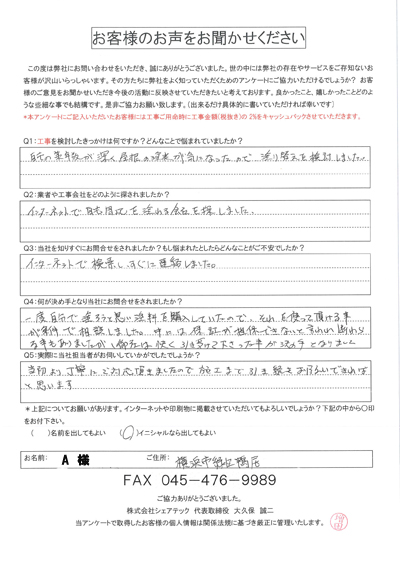 お客様のお声をお聞かせください
この度は弊社にお問い合わせをいただき、誠にありがとうございました。世の中には弊社の存在やサービスをご存知ないお
客様が沢山いらっしゃいます。その方たちに弊社をよく知っていただくためのアンケートにご協力いただけるでしょうか? お客
様のご意見をお聞かせいただき今後の活動に反映させていただきたいと考えております。良かったこと、嬉しかったことどのよ
うな些細な事でも結構です。是非ご協力お願い致します。(出来るだけ具体的に書いていただければ幸いです)
*本アンケートにご記入いただいたお客様には工事ご用命時に工事金額(税抜き)の 2%をキャッシュバックさせていただきます。
Q1:工事を検討したきっかけは何ですか?どんなことで悩まれていましたか?
屋根の 塗り替えを検討しました。
Q2:業者や工事会社をどのように探されましたか?
インターネットで 塗れる会社を探しました。
Q3:当社を知りすぐにお問合せをされましたか?もし悩まれたとしたらどんなことがご不安でしたか?
インターネットで検索し、すぐに連絡しました。
Q4:何が決め手となり当社にお問合せをされましたか?
一度自分で塗ろうと思い塗料を購入していたので、それを使って頂ける事
が条件で相談しました。中には保証が担保できないと言われ断わら
る事もありましたが 快く引き受て下さった事が決め手となりました
Q5:実際に当社担当者がお伺いしていかがでしたでしょうか?
当初より丁寧にご対応頂きましたので施工まで引き続きお願いできればな
と思います
*上記についてお願いがあります。インターネットや印刷物に掲載させていただいてもよろしいでしょうか? 下記の中から〇印
をお付下さい。
( )名前を出してもよい (〇)イニシャルなら出してもよい
お名前: A 様 ご住所: 横浜市都筑区鴨居
FAX 045-476-9989
ご協力ありがとうございました。
株式会社シェアテック 代表取締役 大久保 誠二
当アンケートで取得したお客様の個人情報は関係法規に基づき厳正に管理いたします。